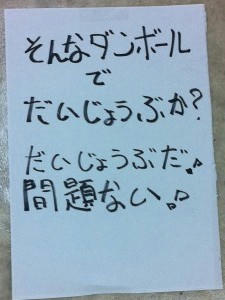 そんなダンボール
で
だいじょうぶか?
だいじょうぶだ♪
問題ない♪